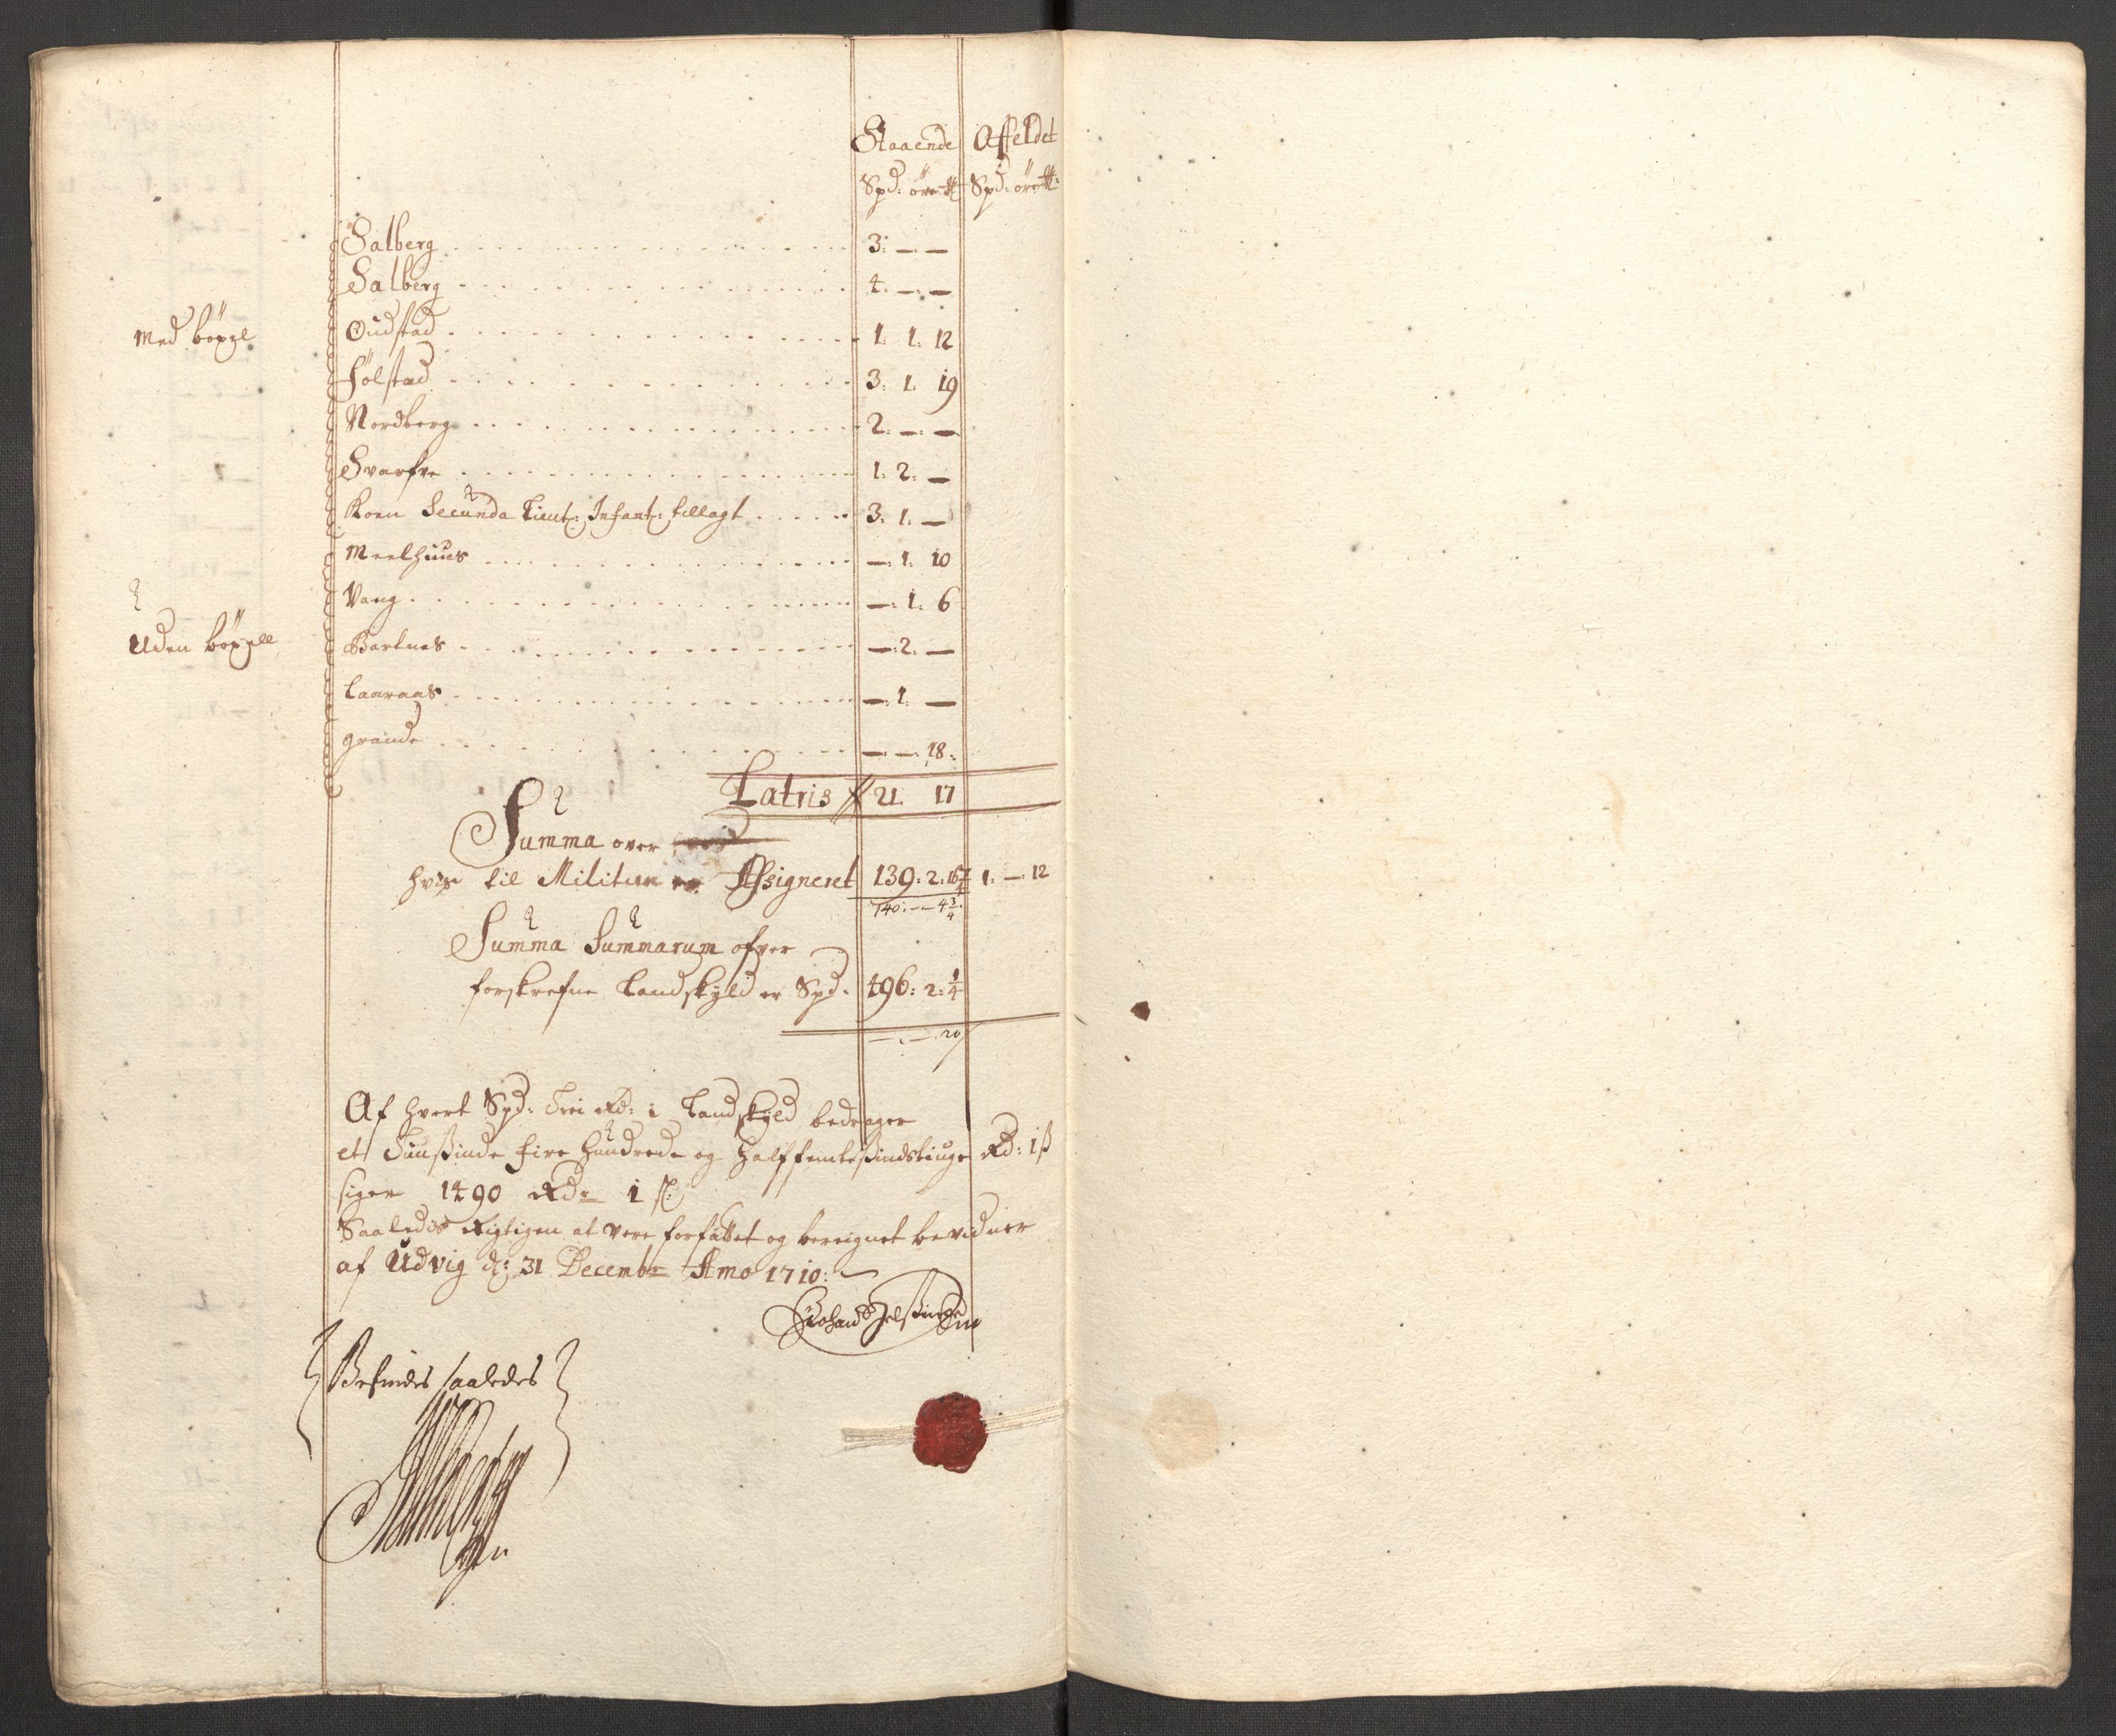 Staaende Affeldet
Spd: öre ℔ Spd: öre ℔:
Salberg 3: — —
Salberg 4: — —
Med böxel
Oudstad 1: 1: 12
Følstad 3: 1: 19
Nordberg 2: — —
Svarfve 1: 2: —
Koen Secunda Lieut: Infant: tillagt 3: 1: —
Meelhuus —: 1: 10
Vang —: 1: 6
Uden böxell
Bartnes —: 2: —
Laaraas —: 1: —
Grande — —: 18:
Latris 21. 17
Summa over
hvis til Militien er Assigneret 139: 2: 16 1: —: 12
140: — 4 3/4
Summa Summarum ofver
forskrefne Landskyld er Spd. 496: 2: 1/4
—: —: 20
Af hvert Spd: Trei Rd: i Landskyld bedrager
et Tuusinde fire Hundrede og Halffemtesindstiuge Rd: 1 ß
siger 1490 Rdr 1 ß
Saaledes Rigtigen at vere forfattet og beregnet bevidner
af Udvig d: 31 Decembr Anno 1710:
Befindes saaledes